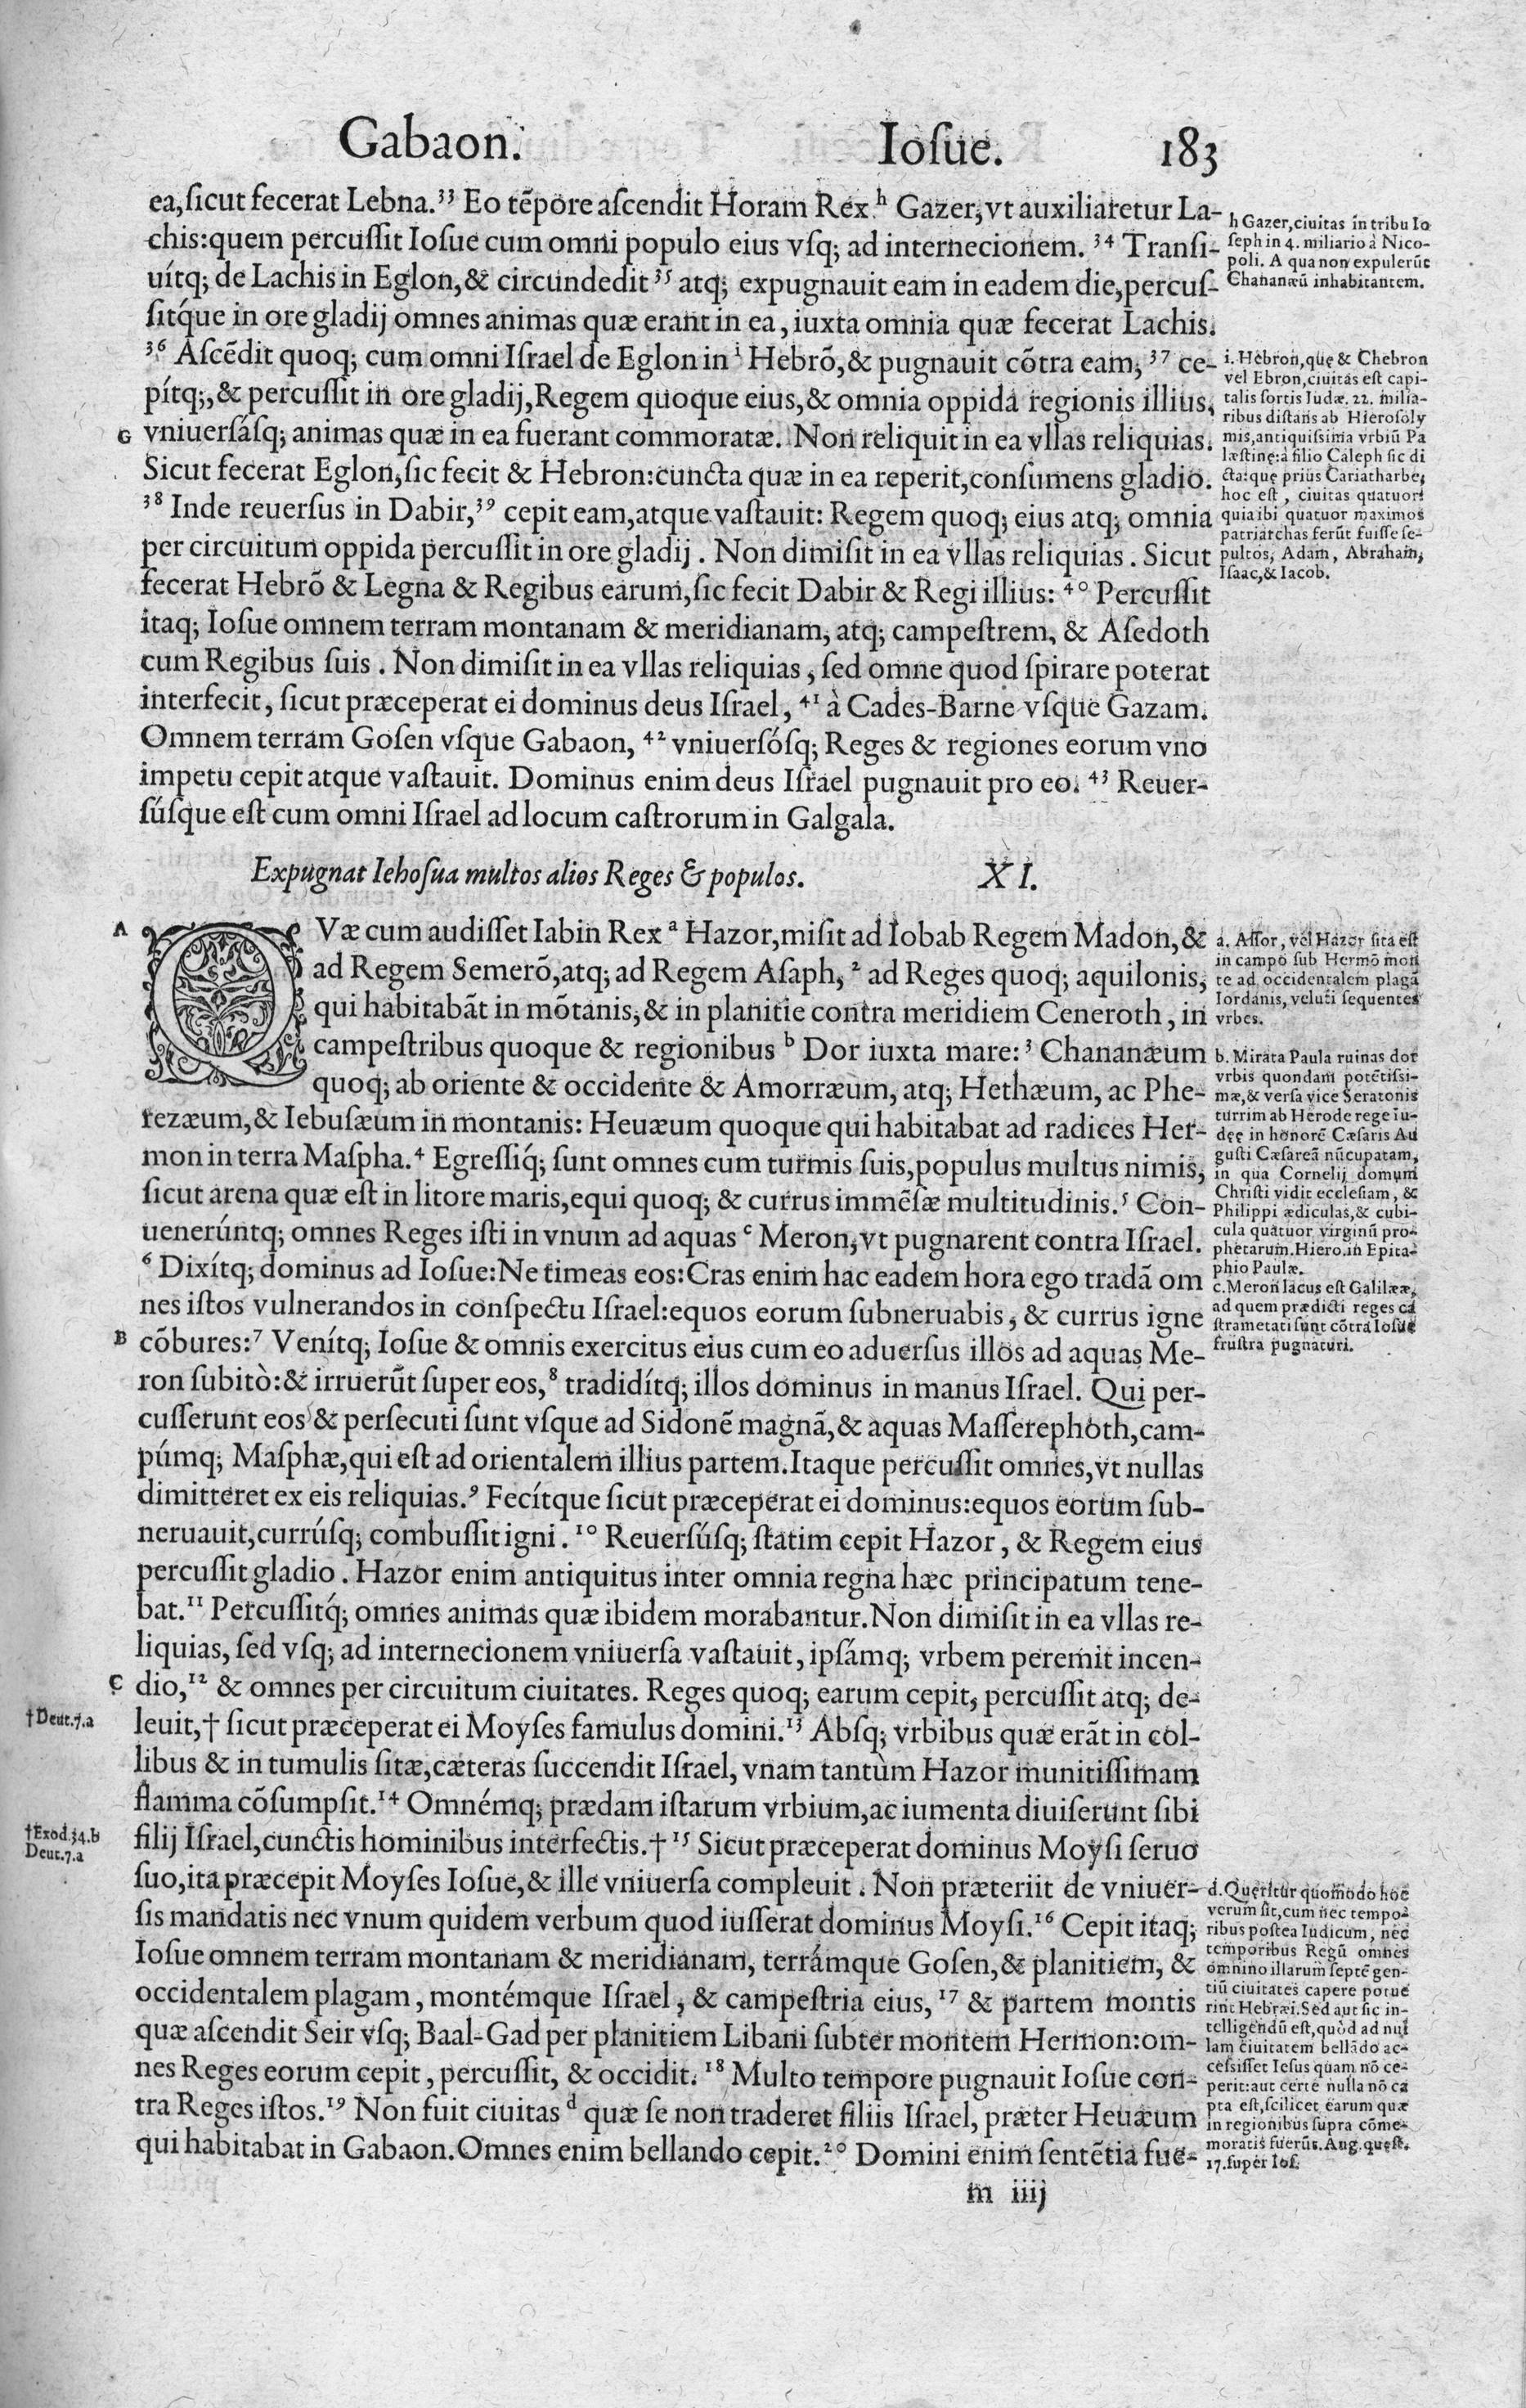 Gabaon. Iosue. 183
ea,sicut fecerat Lebna.³³ Eo tẽpore ascendit Horam Rex ʰ Gazer, vt auxiliaretur La-
chis:quem percussit Iosue cum omni populo eius vsq; ad internecionem. ³⁴ Transi-
uítq; de Lachis in Eglon,& circundedit ³⁵ atq; expugnauit eam in eadem die,percus-
sitq́ue in ore gladij omnes animas quæ erant in ea, iuxta omnia quæ fecerat Lachis.
³⁶ Ascẽdit quoq; cum omni Israel de Eglon in ⁱ Hebrõ,& pugnauit cõtra eam, ³⁷ ce-
pítq;,& percussit in ore gladij,Regem quoque eius,& omnia oppida regionis illius,
G vniuersásq; animas quæ in ea fuerant commoratæ. Non reliquit in ea vllas reliquias.
Sicut fecerat Eglon,sic fecit & Hebron:cuncta quæ in ea reperit,consumens gladio.
³⁸ Inde reuersus in Dabir,³⁹ cepit eam,atque vastauit: Regem quoq; eius atq; omnia
per circuitum oppida percussit in ore gladij. Non dimisit in ea vllas reliquias. Sicut
fecerat Hebrõ & Legna & Regibus earum,sic fecit Dabir & Regi illius: ⁴⁰ Percussit
itaq; Iosue omnem terram montanam & meridianam, atq; campestrem, & Asedoth
cum Regibus suis. Non dimisit in ea vllas reliquias, sed omne quod spirare poterat
interfecit, sicut præceperat ei dominus deus Israel, ⁴¹ à Cades-Barne vsque Gazam.
Omnem terram Gosen vsque Gabaon, ⁴² vniuersósq; Reges & regiones eorum vno
impetu cepit atque vastauit. Dominus enim deus Israel pugnauit pro eo. ⁴³ Reuer-
súsque est cum omni Israel ad locum castrorum in Galgala.
h Gazer,ciuitas in tribu Io
seph in 4. miliario à Nico-
poli. A qua non expulerũt
Chananæũ inhabitantem.
i. Hebron,quę & Chebron
vel Ebron,ciuitas est capi-
talis sortis Iudæ. 22. milia-
ribus distans ab Hierosoly
mis,antiquissima vrbiũ Pa
læstinę:à filio Caleph sic di
cta:quę priùs Cariatharbe,
hoc est, ciuitas quatuor:
quia ibi quatuor maximos
patriarchas ferũt fuisse se-
pultos, Adam, Abraham,
Isaac,& Iacob.
Expugnat Iehosua multos alios Reges & populos. XI.
A QVæ cum audisset Iabin Rex ᵃ Hazor,misit ad Iobab Regem Madon,&
ad Regem Semerõ,atq; ad Regem Asaph, ² ad Reges quoq; aquilonis,
qui habitabãt in mõtanis,& in planitie contra meridiem Ceneroth, in
campestribus quoque & regionibus ᵇ Dor iuxta mare: ³ Chananæum
quoq; ab oriente & occidente & Amorræum, atq; Hethæum, ac Phe-
rezæum,& Iebusæum in montanis: Heuæum quoque qui habitabat ad radices Her-
mon in terra Maspha.⁴ Egressiq́; sunt omnes cum turmis suis,populus multus nimis,
sicut arena quæ est in litore maris,equi quoq; & currus immẽsæ multitudinis.⁵ Con-
uenerúntq; omnes Reges isti in vnum ad aquas ᶜ Meron,vt pugnarent contra Israel.
⁶ Dixítq; dominus ad Iosue:Ne timeas eos:Cras enim hac eadem hora ego tradã om
nes istos vulnerandos in conspectu Israel:equos eorum subneruabis, & currus igne
B cõbures:⁷ Venítq; Iosue & omnis exercitus eius cum eo aduersus illos ad aquas Me-
ron subitò:& irruerũt super eos,⁸ tradidítq; illos dominus in manus Israel. Qui per-
cusserunt eos & persecuti sunt vsque ad Sidonẽ magnã,& aquas Masserephoth,cam-
púmq; Masphæ,qui est ad orientalem illius partem.Itaque percussit omnes,vt nullas
dimitteret ex eis reliquias.⁹ Fecítque sicut præceperat ei dominus:equos eorum sub-
neruauit,currúsq; combussit igni. ¹⁰ Reuersúsq; statim cepit Hazor, & Regem eius
percussit gladio. Hazor enim antiquitus inter omnia regna hæc principatum tene-
bat.¹¹ Percussitq́; omnes animas quæ ibidem morabantur.Non dimisit in ea vllas re-
liquias, sed vsq; ad internecionem vniuersa vastauit, ipsámq; vrbem peremit incen-
C dio,¹² & omnes per circuitum ciuitates. Reges quoq; earum cepit, percussit atq; de-
†Deut.7.a leuit,† sicut præceperat ei Moyses famulus domini.¹³ Absq; vrbibus quæ erãt in col-
libus & in tumulis sitæ,cæteras succendit Israel, vnam tantùm Hazor munitissimam
flamma cõsumpsit.¹⁴ Omnémq; prædam istarum vrbium,ac iumenta diuiserunt sibi
†Exod.34.b filij Israel,cunctis hominibus interfectis.† ¹⁵ Sicut præceperat dominus Moysi seruo
Deut.7.a
suo,ita præcepit Moyses Iosue,& ille vniuersa compleuit. Non præteriit de vniuer-
sis mandatis nec vnum quidem verbum quod iusserat dominus Moysi.¹⁶ Cepit itaq;
Iosue omnem terram montanam & meridianam, terrámque Gosen,& planitiem, &
occidentalem plagam, montémque Israel, & campestria eius, ¹⁷ & partem montis
quæ ascendit Seir vsq; Baal-Gad per planitiem Libani subter montem Hermon:om-
nes Reges eorum cepit, percussit, & occidit. ¹⁸ Multo tempore pugnauit Iosue con-
tra Reges istos.¹⁹ Non fuit ciuitas ᵈ quæ se non traderet filiis Israel, præter Heuæum
qui habitabat in Gabaon.Omnes enim bellando cepit.²⁰ Domini enim sentẽtia fue-
a. Assor, vel Hazor sita est
in campo sub Hermõ mon
te ad occidentalem plagã
Iordanis, veluti sequentes
vrbes.
b. Mirata Paula ruinas dor
vrbis quondam potẽtissi-
mæ,& versa vice Seratonis
turrim ab Herode rege Iu-
dęę in honorẽ Cæsaris Au
gusti Cæsareã nũcupatam,
in qua Cornelij domum
Christi vidit ecclesiam, &
Philippi ædiculas,& cubi-
cula quatuor virginũ pro-
phetarum.Hiero.in Epita-
phio Paulæ.
c.Meron lacus est Galilææ,
ad quem prædicti reges ca
strametati sunt cõtra Iosue
frustra pugnaturi.
d.Quęritur quomodo hoc
verum sit,cum nec tempo-
ribus postea Iudicum, nec
temporibus Regũ omnes
omnino illarum septẽ gen-
tiũ ciuitates capere potue
rint Hebræi.Sed aut sic in-
telligendũ est,quòd ad nul
lam ciuitatem bellãdo ac-
cessisset Iesus quam nõ ce-
perit:aut certè nulla nõ ca
pta est,scilicet earum quæ
in regionibus supra cõme-
moratis fuerũt. Aug.quęst.
17.super Ios.
m iiij